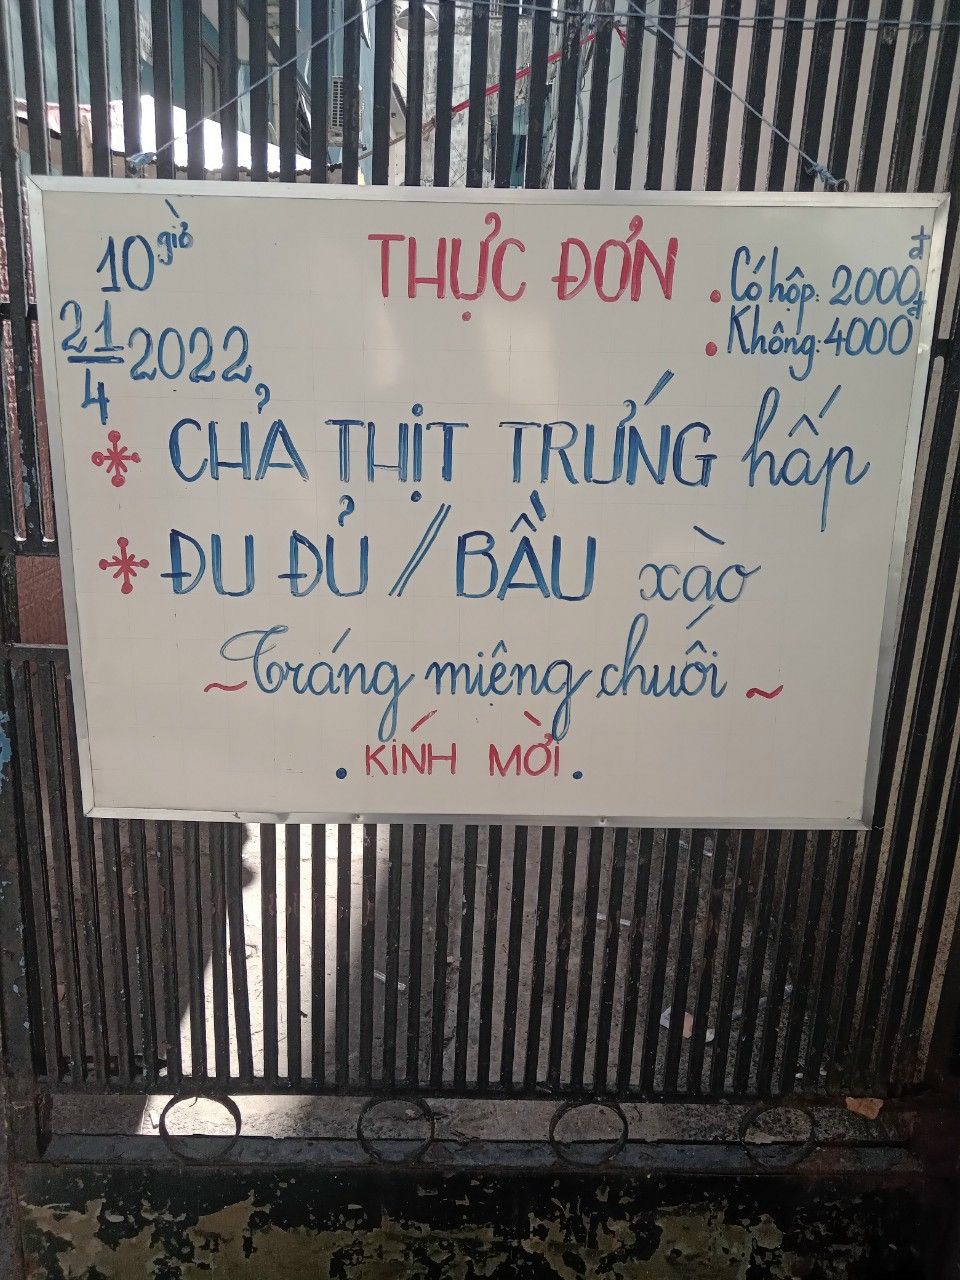 10 giờ
21/4 2022
THỰC ĐƠN
. Có hộp: 2000đ
. Không: 4000đ
* CHẢ THỊT TRỨNG hấp
* ĐU ĐỦ // BẦU xào
~ Tráng miệng chuối ~
. KÍNH MỜI .